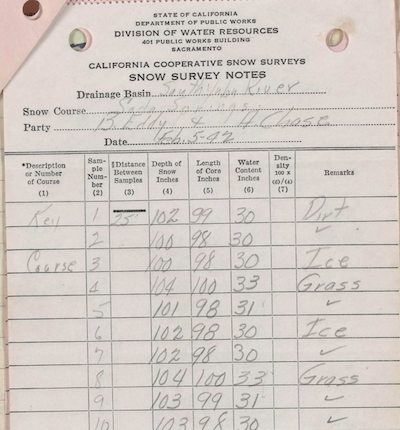 STATE OF CALIFORNIA
DEPARTMENT OF PUBLIC WORKS
DIVISION OF WATER RESOURCES
401 PUBLIC WORKS BUILDING
SACRAMENTO
CALIFORNIA COOPERATIVE SNOW SURVEYS
SNOW SURVEY NOTES
Drainage Basin South Yuba River
Snow Course Soda Springs
Party B Eddy & H Chase
Date Feb. 5-42
*Description or Number of Course (1) Sample Number (2) ‡Distance Between Samples (3) Depth of Snow Inches (4) Length of Core Inches (5) Water Content Inches (6) Density 100 x (6)/(5) (7) Remarks
Key 1 25' 102 99 30 Dirt
2 100 98 30 ✓
Course 3 100 98 30 Ice
4 104 100 33 Grass
5 101 98 31 ✓
6 102 98 30 Ice
7 102 98 30 ✓
8 104 100 33 Grass
9 103 99 31 ✓
10 103 98 30 ✓